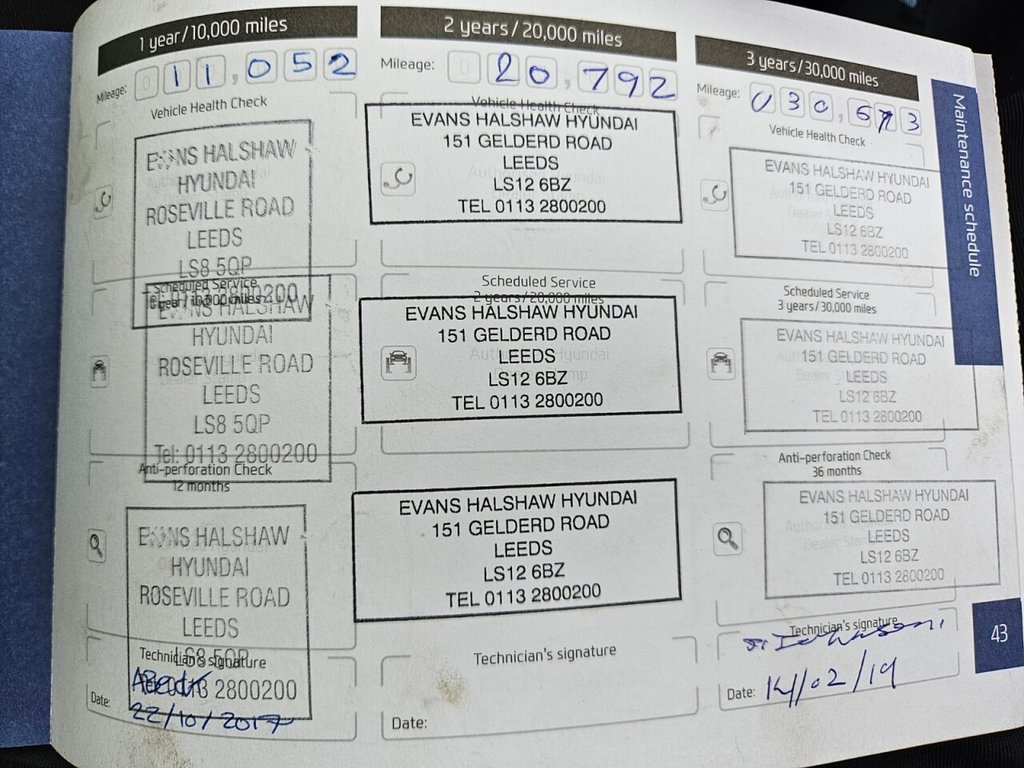 1 year/10,000 miles
Mileage: 011,052
Vehicle Health Check
EVANS HALSHAW
HYUNDAI
ROSEVILLE ROAD
LEEDS
LS8 5QP
Scheduled Service
EVANS HALSHAW
HYUNDAI
ROSEVILLE ROAD
LEEDS
LS8 5QP
Tel: 0113 2800200
Anti-perforation Check
12 months
EVANS HALSHAW
HYUNDAI
ROSEVILLE ROAD
LEEDS
LS8 5QP
Technician's signature
2800200
Date: 22/10/2017
2 years/20,000 miles
Mileage: 020,792
Vehicle Health Check
EVANS HALSHAW HYUNDAI
151 GELDERD ROAD
LEEDS
LS12 6BZ
TEL 0113 2800200
Scheduled Service
2 years/20,000 miles
EVANS HALSHAW HYUNDAI
151 GELDERD ROAD
LEEDS
LS12 6BZ
TEL 0113 2800200
EVANS HALSHAW HYUNDAI
151 GELDERD ROAD
LEEDS
LS12 6BZ
TEL 0113 2800200
Technician's signature
Date:
3 years/30,000 miles
Mileage: 030,673
Vehicle Health Check
EVANS HALSHAW HYUNDAI
151 GELDERD ROAD
LEEDS
LS12 6BZ
TEL 0113 2800200
Scheduled Service
3 years/30,000 miles
EVANS HALSHAW HYUNDAI
151 GELDERD ROAD
LEEDS
LS12 6BZ
TEL 0113 2800200
Anti-perforation Check
36 months
EVANS HALSHAW HYUNDAI
151 GELDERD ROAD
LEEDS
LS12 6BZ
TEL 0113 2800200
Technician's signature
Date: 14/02/19
Maintenance schedule
43